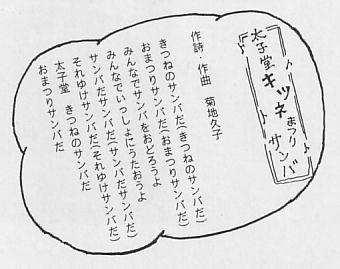 太子堂
キツネまつり
サンバ
作詩・作曲　菊地久子
きつねのサンバだ(きつねのサンバだ)
おまつりサンバだ(おまつりサンバだ)
みんなでサンバをおどろうよ
みんなでいっしょにうたおうよ
サンバだサンバだ(サンバだサンバだ)
それゆけサンバだ(それゆけサンバだ)
太子堂　きつねのサンバだ
おまつりサンバだ